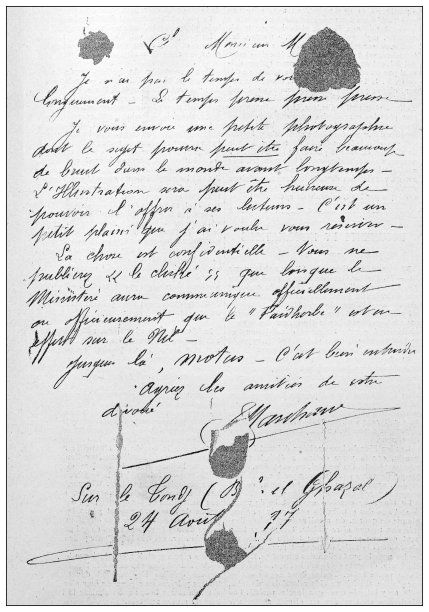 Monsieur M
Je n'ai pas le temps de vous
longuement — Le temps presse presse presse —
Je vous envoie une petite photographie
dont le sujet pourra peut être faire beaucoup
de bruit dans le monde avant longtemps —
L'Illustration sera peut être heureuse de
pouvoir l'offrir à ses lecteurs — C'est un
petit plaisir que j'ai voulu vous réserver —
La chose est confidentielle — Vous ne
publierez « le cliché » que lorsque le
Ministère aura communiqué officiellement
ou officieusement que le "Faidherbe" est en
effet sur le Nil —
Jusque là, motus — C'est bien entendu
Agréez les amitiés de votre
dévoué
Marchand
Sur le Tondj (B el Ghazal)
24 Août 97